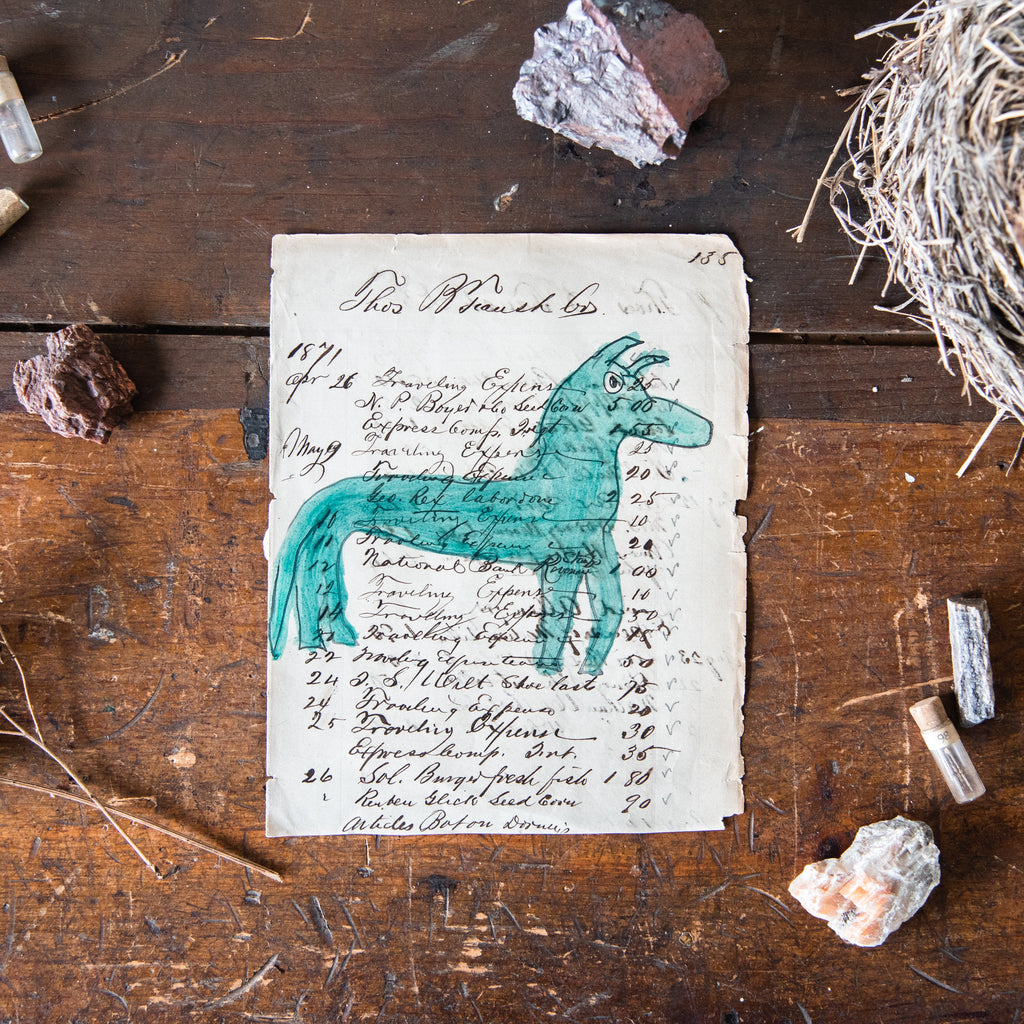 135
Thos B
1871
Apr 26 Traveling Expens 25
N. P. Boyer & Co Seed Corn 5 00
Express Comp. 
May 9 Traveling Expense 25
Traveling Expense 20
Geo. Rex labor done 2 25
10 Traveling Expense 10
11 Traveling Expense 20
12 National Bank Revenue 1 00
12 Traveling Expens 10
Traveling Expens 50
20 Traveling Expens
22 Traveling Expense 50
24 J. S. Wilt Shoe last 75
24 Traveling Expense 20
25 Traveling Expense 30
Express Comp. 35
26 Sol. Burger fresh fish 1 80
Reuben Glick Seed Corn 90
Articles